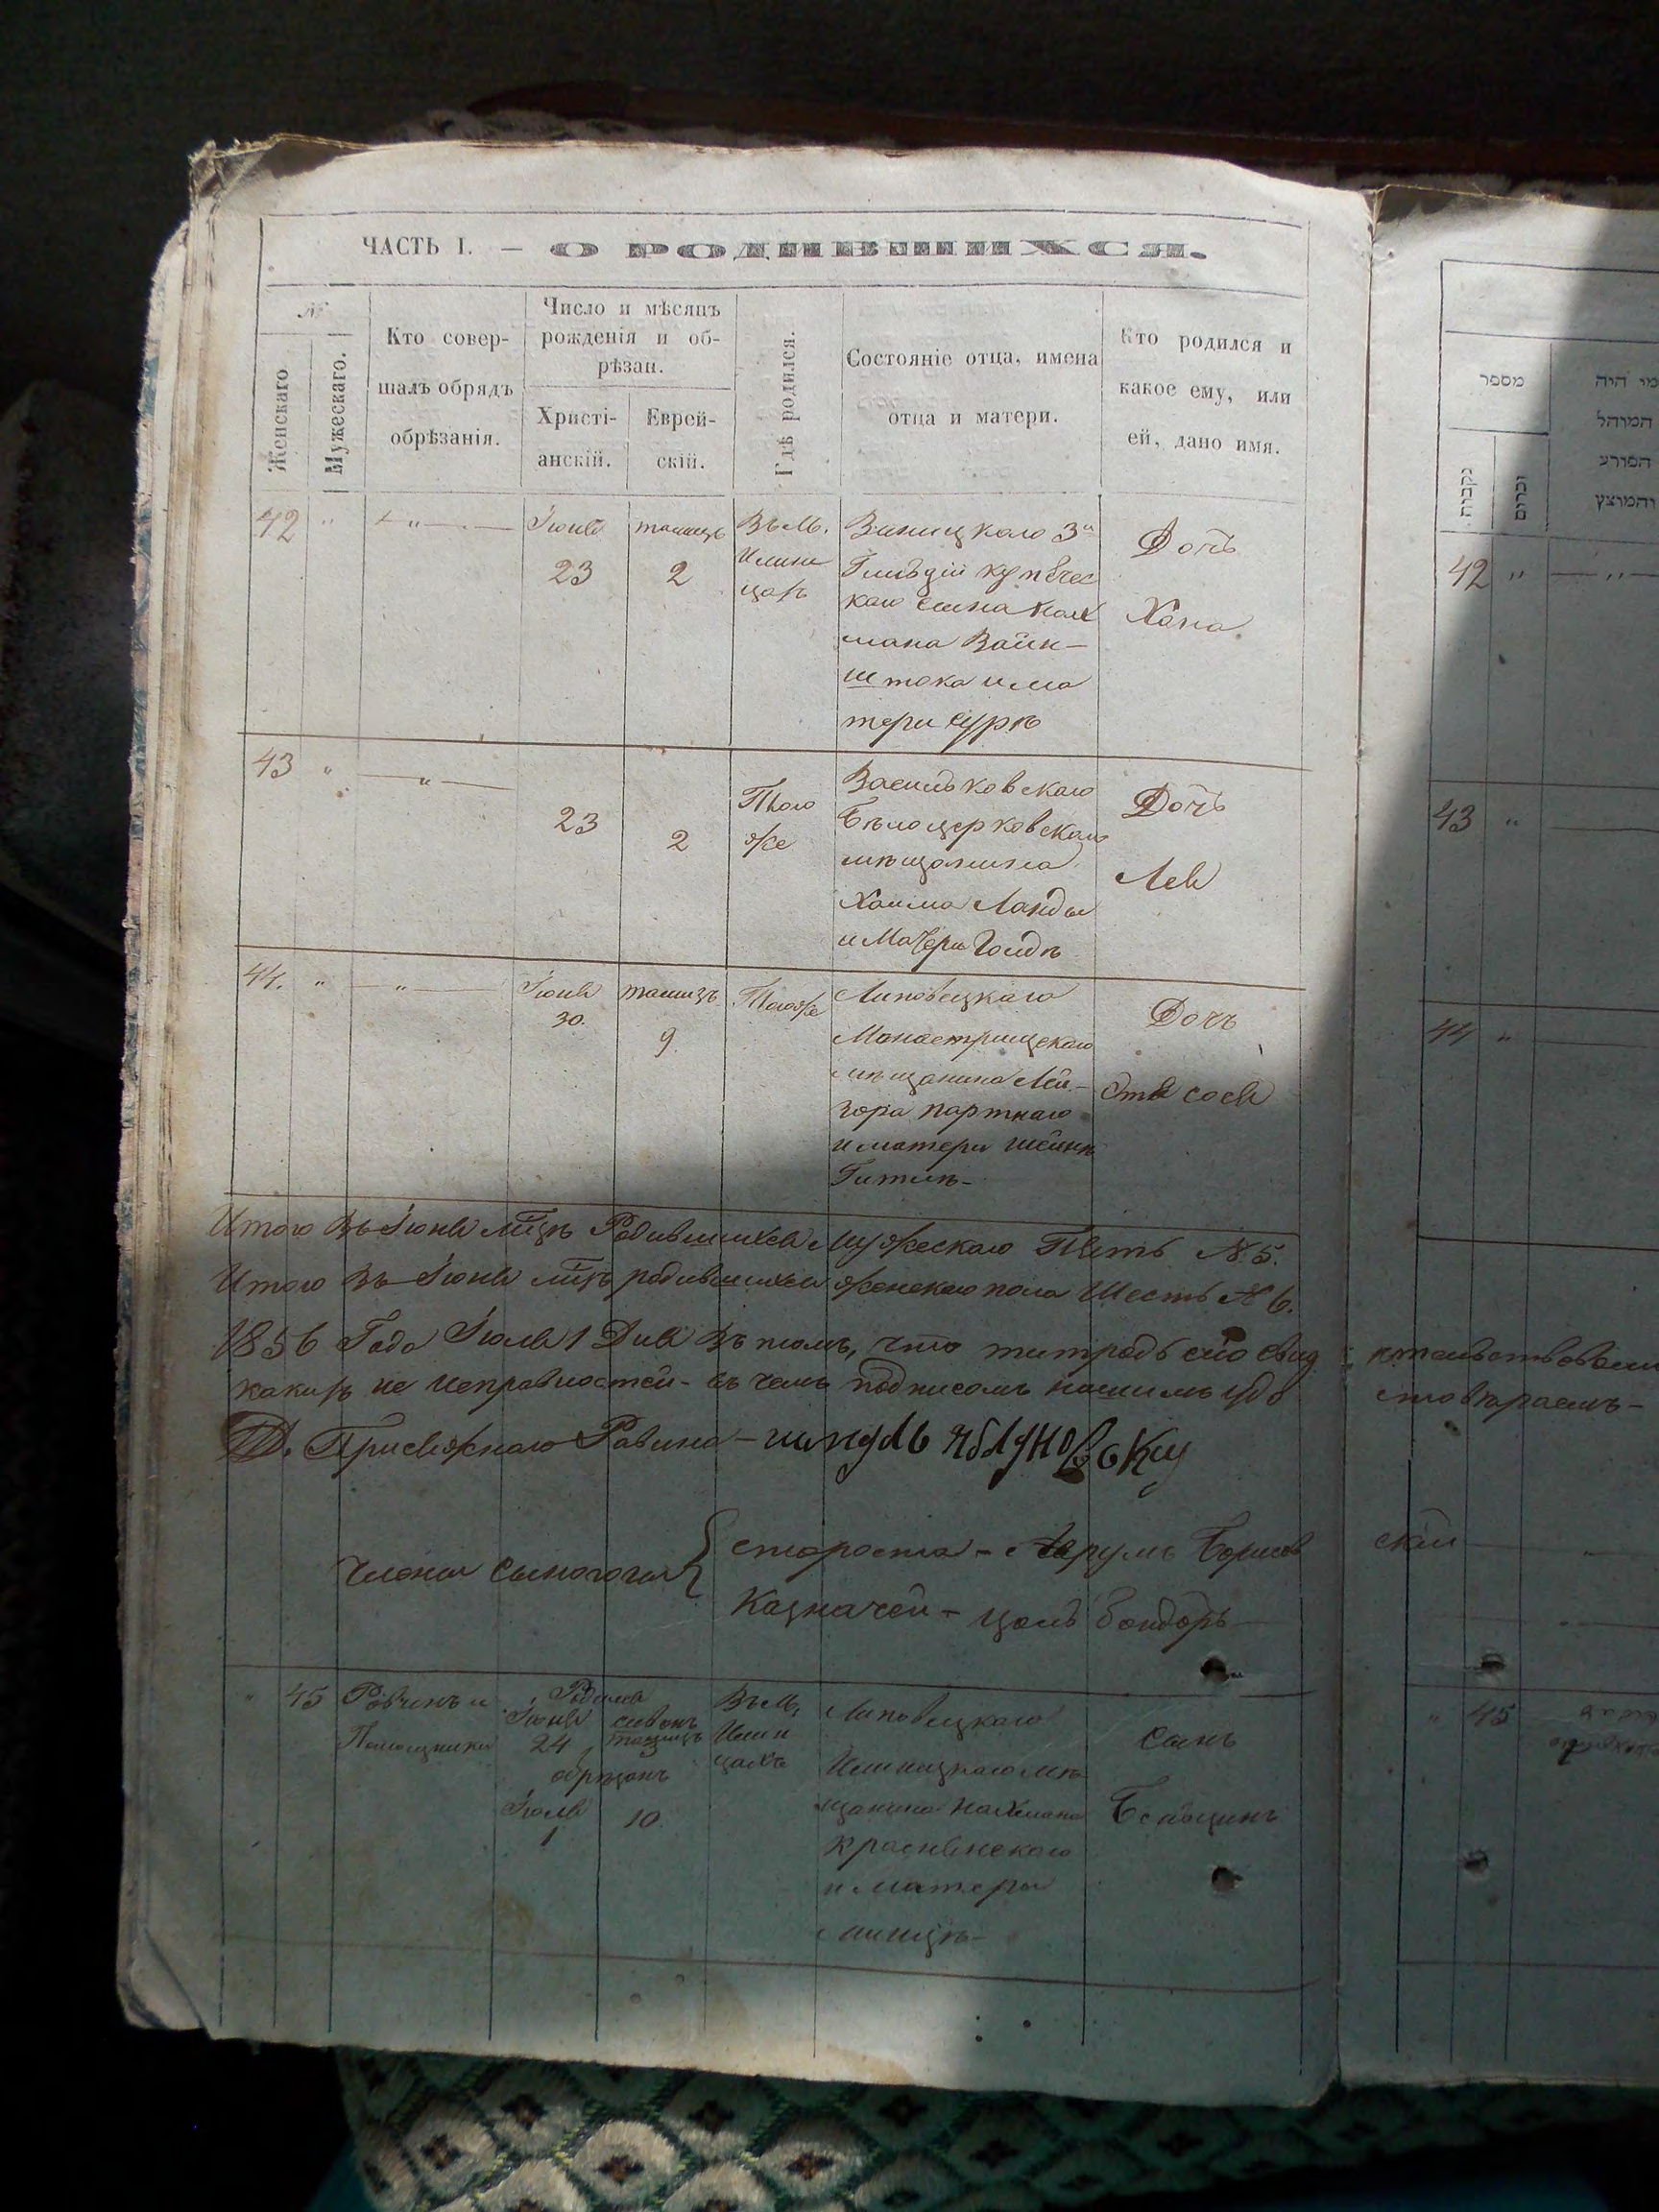 ЧАСТЬ I. — О РОДИВШИХСЯ.
№
Женскаго
Мужескаго.
Кто совер-
шалъ обрядъ
обрѣзанія.
Число и мѣсяцъ
рожденія и об-
рѣзан.
Христі-
анскій.
Еврей-
скій.
Гдѣ родился.
Состояніе отца, имена
отца и матери.
Кто родился и
какое ему, или
ей, дано имя.
42 " — " —
Іюня
23
тамузъ
2
Въ м.
Илинцахъ
Виницкаго 3й
Гильдіи купечес
каго сына Кал
мана Вайн-
штока и ма
тери Сурѣ
Дочь
Хана
43 " — " —
23
2
Того
же
Васильковскаго
Бѣлоцерковскаго
мѣщанина
Хаима Ланды
и Матери Голдѣ
Дочь
Лея
44. " — " —
Іюня
30.
тамузъ
9
Тогоже
Липовецкаго
Монастрищскаго
мѣщанина Лей-
зора Портнаго
и матери Шейнѣ
Гитлѣ-
Дочь
Этя Сося
Итого въ Іюня мцѣ Родившихся Мужескаго Пять № 5.
Итого въ Іюня мцѣ родившихся женскаго пола Шесть № 6.
1856 Года Іюля 1 Дня въ томъ, что титрадь сію свид
какихъ не неправностей- въ чемъ подписомъ нашимъ удо
Д. Присяжнаго Равина —
Члены Сыногоги {
староста - Борисов
Казначей - Бондарь
" 45
Помощники
Родился
Іюня
24
сивонъ
обрѣзанъ
Іюля
1
10.
Въ м.
Липовецкаго
Илинацкаго мѣ
щанина Нахмана
Краснянскаго
и матери
Сынъ
מספר
נקבות
זכרים
מי היה
המוהל
הפורע
והמוצץ
42 " — " —
43 "
44 "
ский
" 45